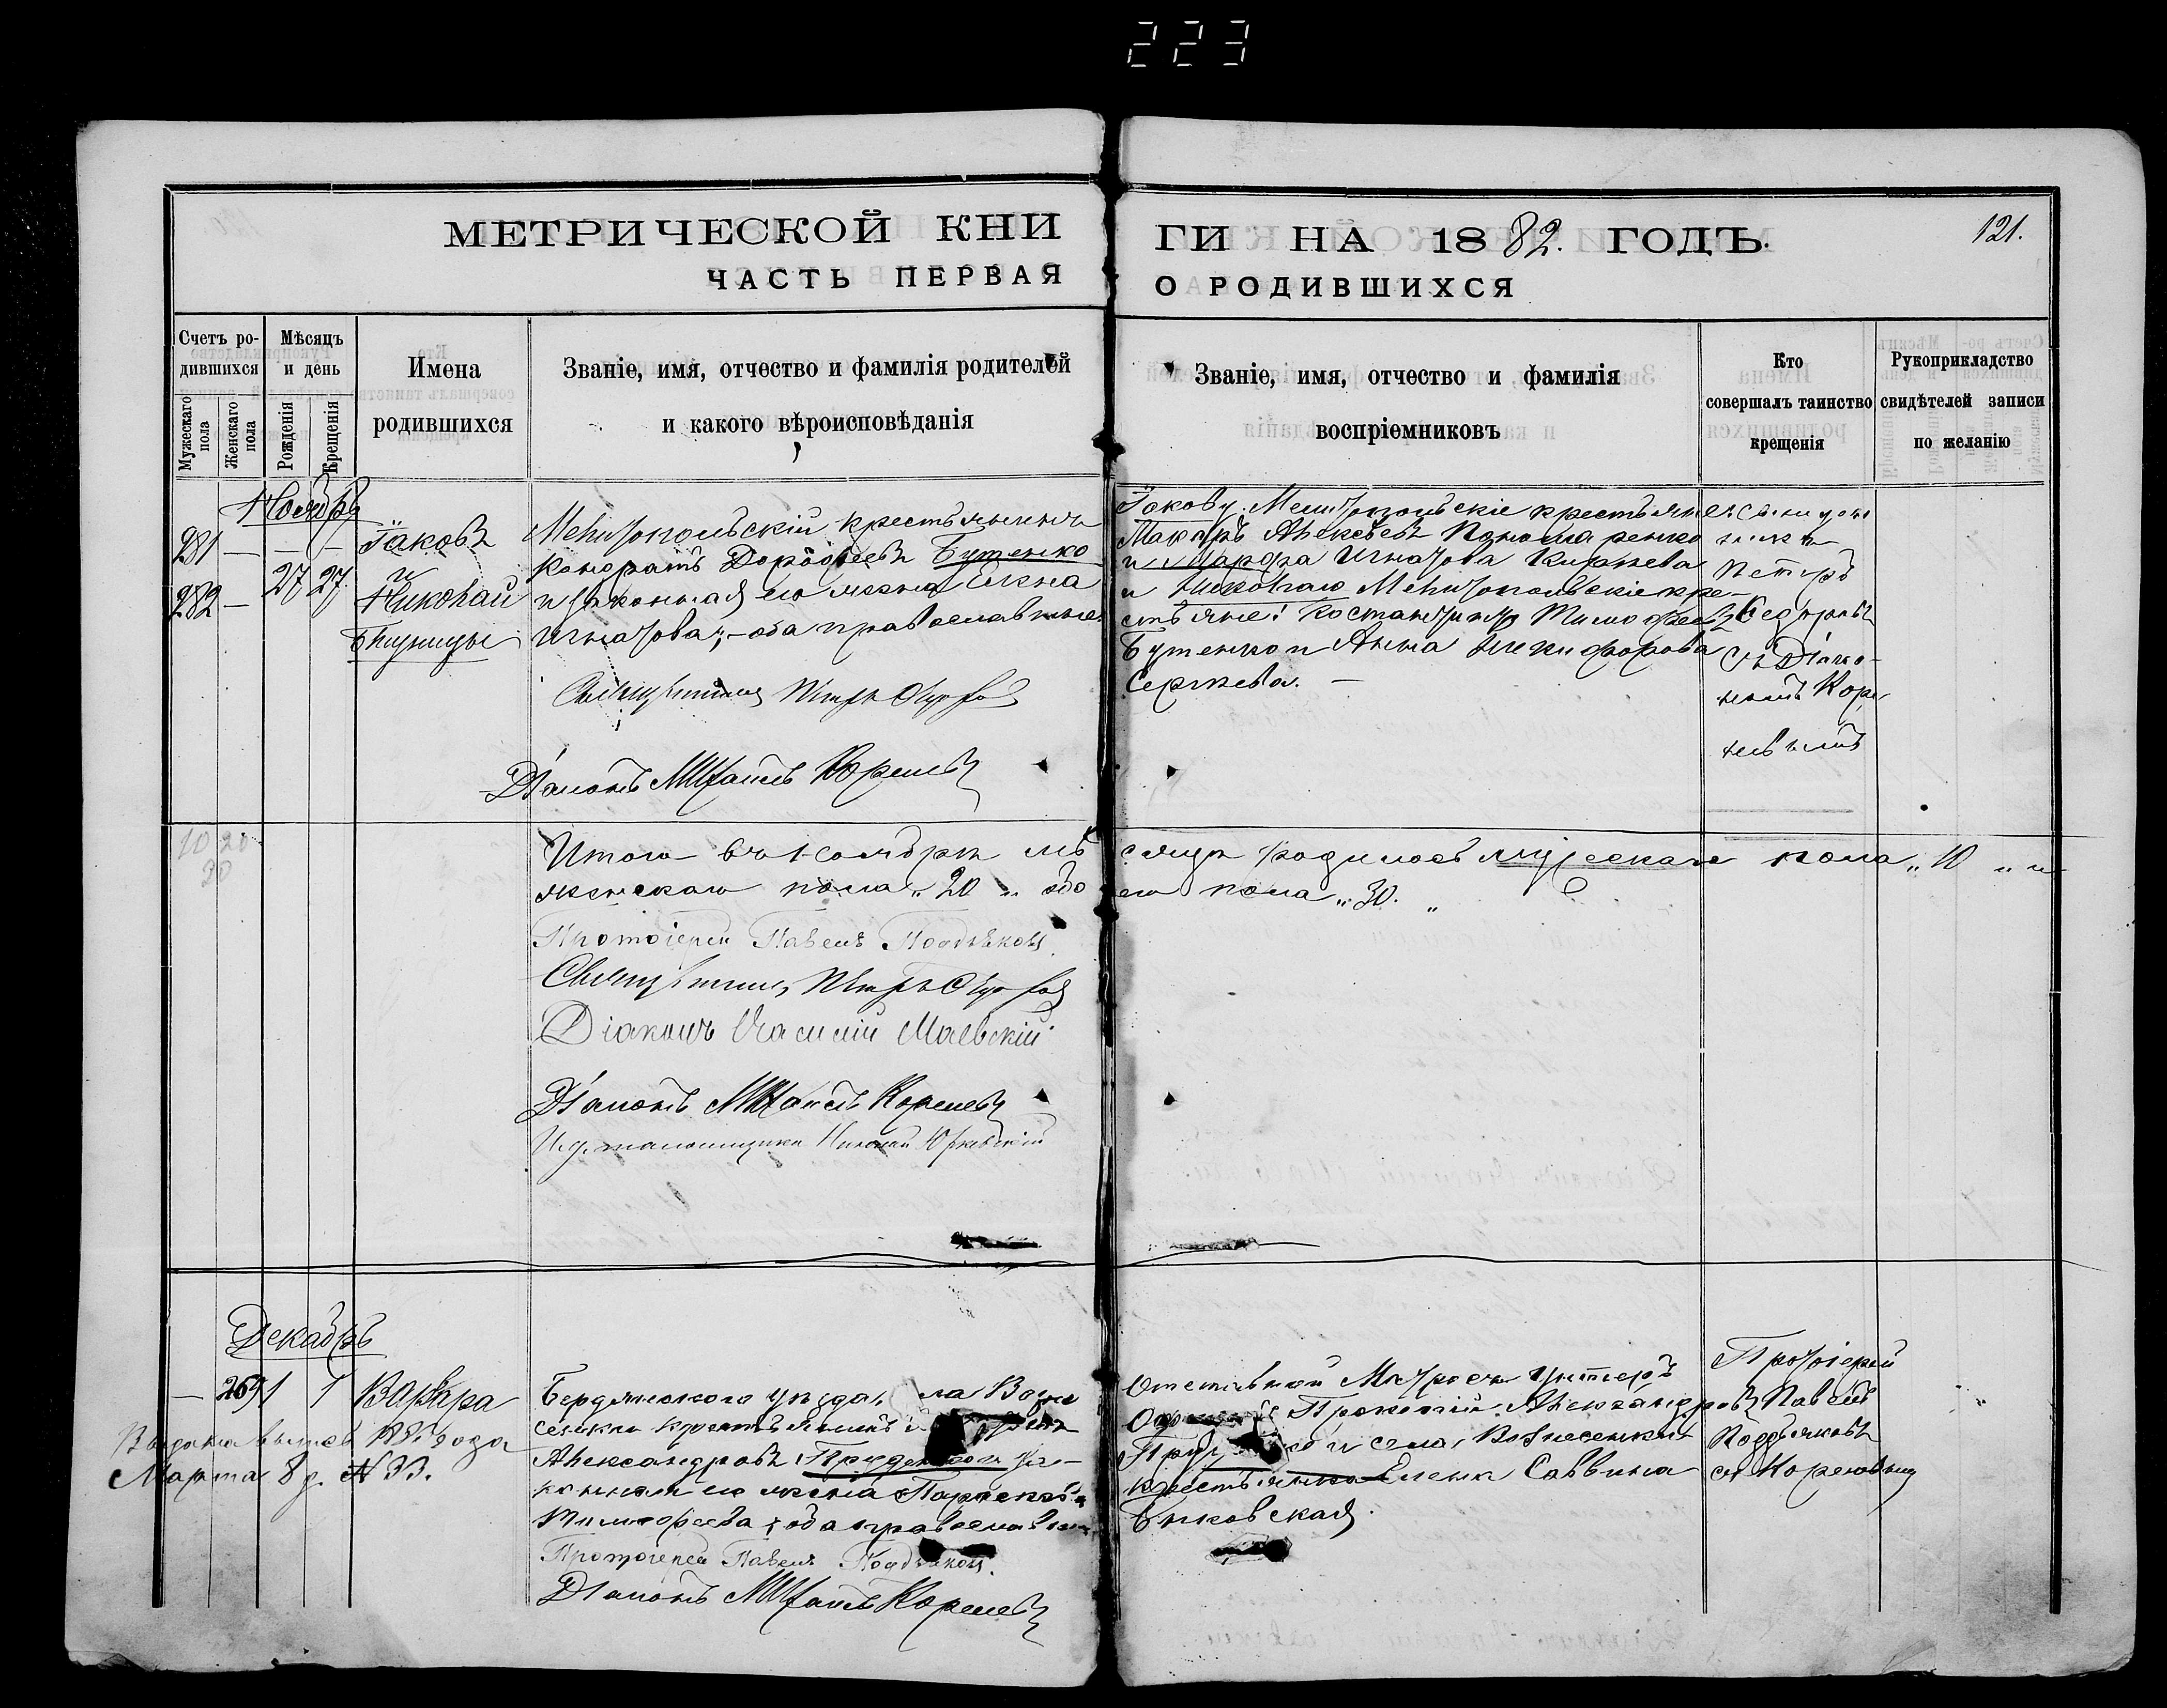 223
МЕТРИЧЕСКОЙ КНИГИ НА 1882. ГОДЪ.
121.
ЧАСТЬ ПЕРВАЯ О РОДИВШИХСЯ
Счетъ родившихся
Мужескаго пола
Женскаго пола
Мѣсяцъ и день
Рожденія
Крещенія
Имена родившихся
Званіе, имя, отчество и фамилія родителей
и какого вѣроисповѣданія
Званіе, имя, отчество и фамилія
воспріемниковъ
Кто
совершалъ таинство
крещенія
Рукоприкладство
свидѣтелей записи
по желанію
Ноябрь
281 — — —
282 — 27 27.
Іаковъ
и
Николай
Близнецы
Мелитопольскій крестьянинъ
Дорофеевъ Бутенко
и законная его жена Елена
Игнатова; – оба православные.
Священникъ Петръ
Діаконъ Михаилъ Кореневъ
Іакову: Мелитопольскіе крестьяне:
Макаръ Алексѣевъ Пономаренко
и Марфа Игнатова
и Николаю Мелитопольскіе кре-
стьяне: Костантинъ Тимофеевъ
Бутенко и Анна Никифорова
Сергѣева. —
Петръ
съ Діако-
номъ Коре
невымъ
10 20
30
Итого въ Ноябрѣ мѣсяцѣ родилось мужеска пола „ 10 „ и
женскаго пола „ 20 „ обоего пола „ 30. „
Протоіерей Павелъ Поддьяковъ.
Священникъ Петръ
Діаконъ Василій Маевскій
Діаконъ Михаилъ Кореневъ
И. д. псаломщика Николай Юрковскій
Декабрь
— 269 1 1
Варвара
Бердянскаго уѣзда, села Возне
сенки крестьянинъ
Александровъ Пруденко и за-
конная его жена Параскева
Тимофеева; оба православные
Протоіерей Павелъ Поддьяковъ.
Діаконъ Михаилъ Кореневъ
Марта 8 д. № 33.
Отставной Матросъ Унтеръ
Прокопій Александровъ
и села Вознесенки
крестьянка Елена Саввина
Быковская.
Протоіерей
Павелъ
Поддьяковъ
съ Кореневымъ